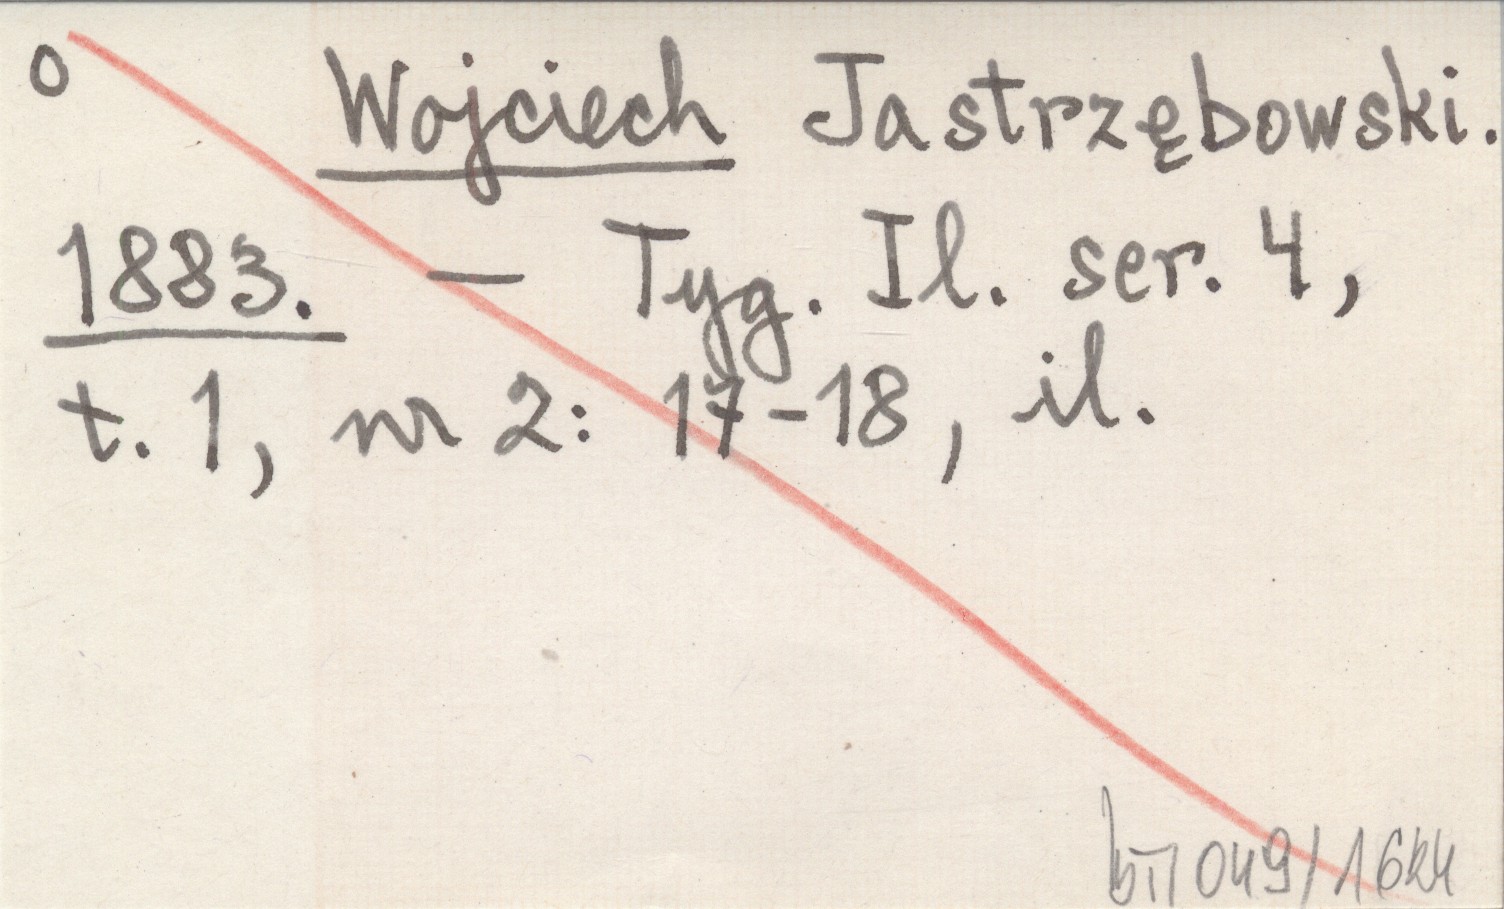 O Wojciech Jastrzębowski.
1883. — Tyg. Il. ser. 4,
t. 1, nr 2: 17-18, il.